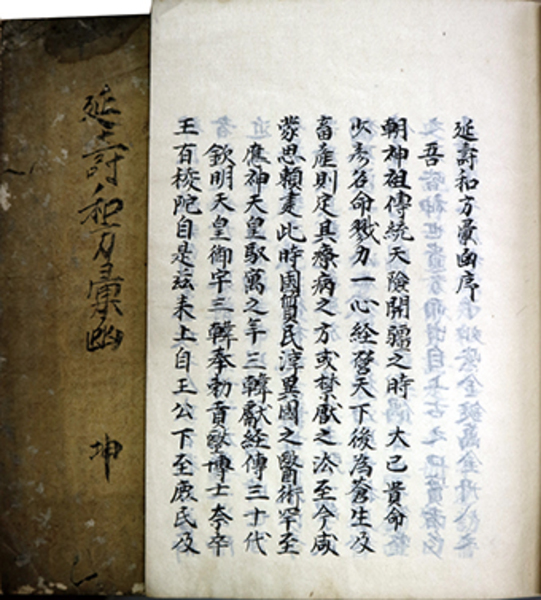 延壽和方彙函序
吾
朝神祖傳統天險開疆之時 大己貴命
少彦名命戮力一心経營天下後為蒼生及
畜産則定其療病之方或禁厭之法至今咸
蒙恩頼此時國質民淳異國之醫術罕至
應神天皇馭寓之年三韓獻經傳三十代
欽明天皇御宇三韓奉勅貢醫博士奈率
王百稜陀自是玆来上自王公下至庶民及
延壽和方彙函 坤